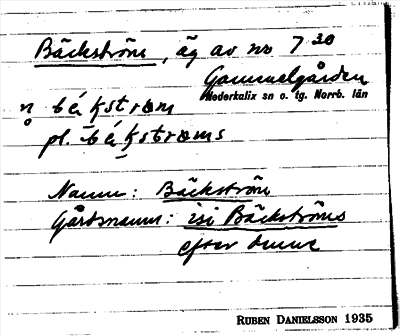 Bäckström, äg av no 7³⁰
Gammelgården
Nederkalix sn o. tg. Norrb. län
bé̱kstrøm
pl. bé̱kstrøms
Namn: Bäckström
Gårdsnamn: isi Bäckströms
efter denne
RUBEN DANIELSSON 1935